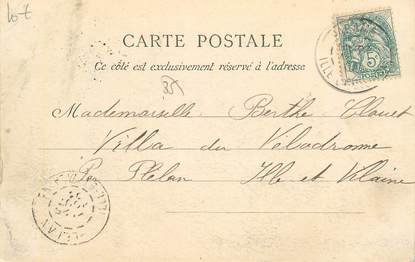 lot
CARTE POSTALE
Ce côté est exclusivement réservé à l'adresse
35
Mademoiselle Berthe Clouet
Villa du Vélodrome
Par Plélan Ille et Vilaine